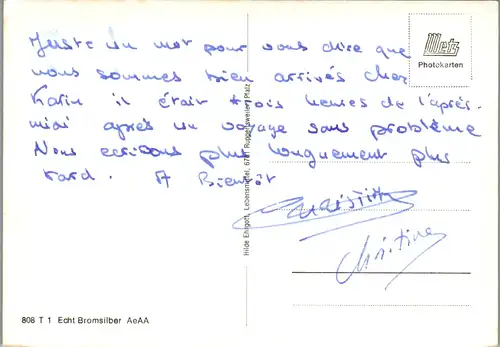 Juste un mot pour vous dire que
nous sommes bien arrivés chez
Karin il était trois heures de l'après-
midi après un voyage sans problème
Nous ecrisons plus longuement plus
tard. A Bientôt
Christine
Metz
Photokarten
Hilde Ehrgott, Lebensmittel, 6781 Ruppertsweiler/Pfalz
808 T 1 Echt Bromsilber AeAA